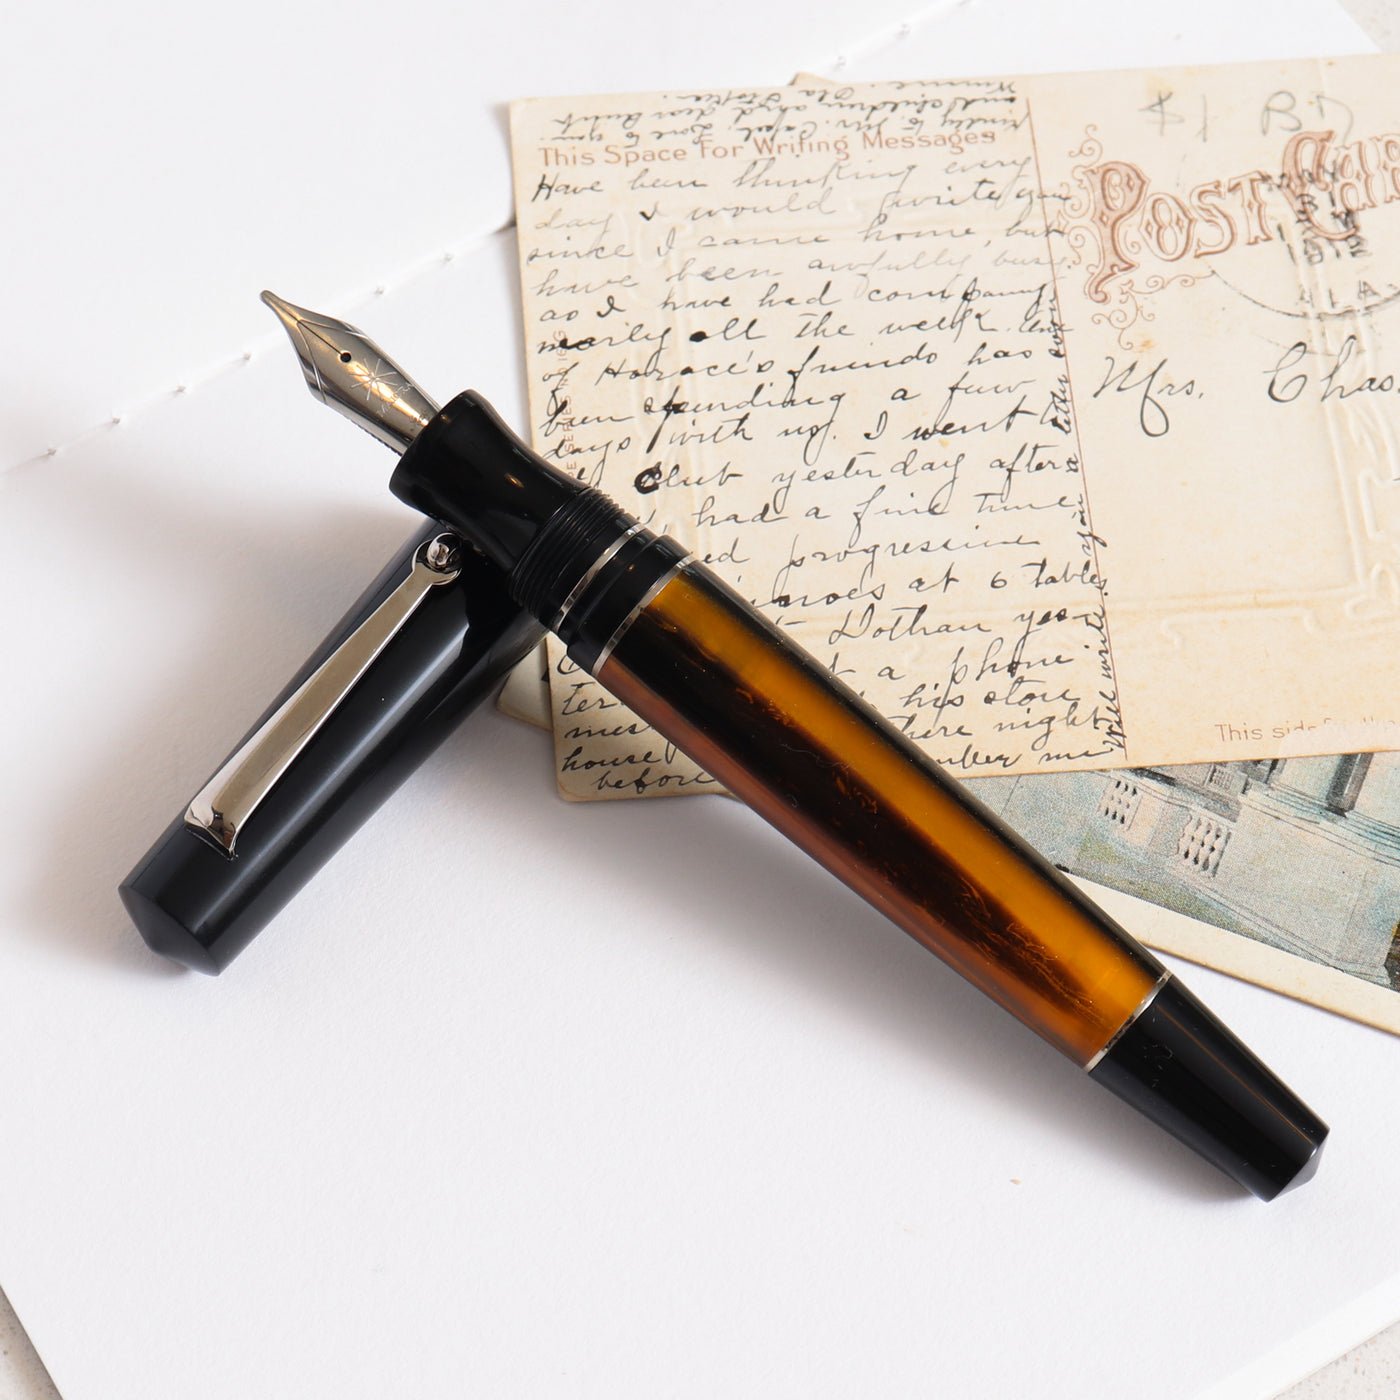 This Space For Writing Messages
Have been thinking every
day I would write you
since I came home, but
have been awfully busy
as I have had company
nearly all the week. One
of Horace's friends has
been spending a few
days with us. I went to
Club yesterday after
had a fine time,
ed progressive
inoes at 6 tables
Dothan yes-
t a phone
ter his store
mes there night
house mber me
before
kindly to Mr. Capel. Love to you
and children and dear Aunt
Will write you a letter soon
POST CARD
$1
ALA.
Mrs. Chas.
This side